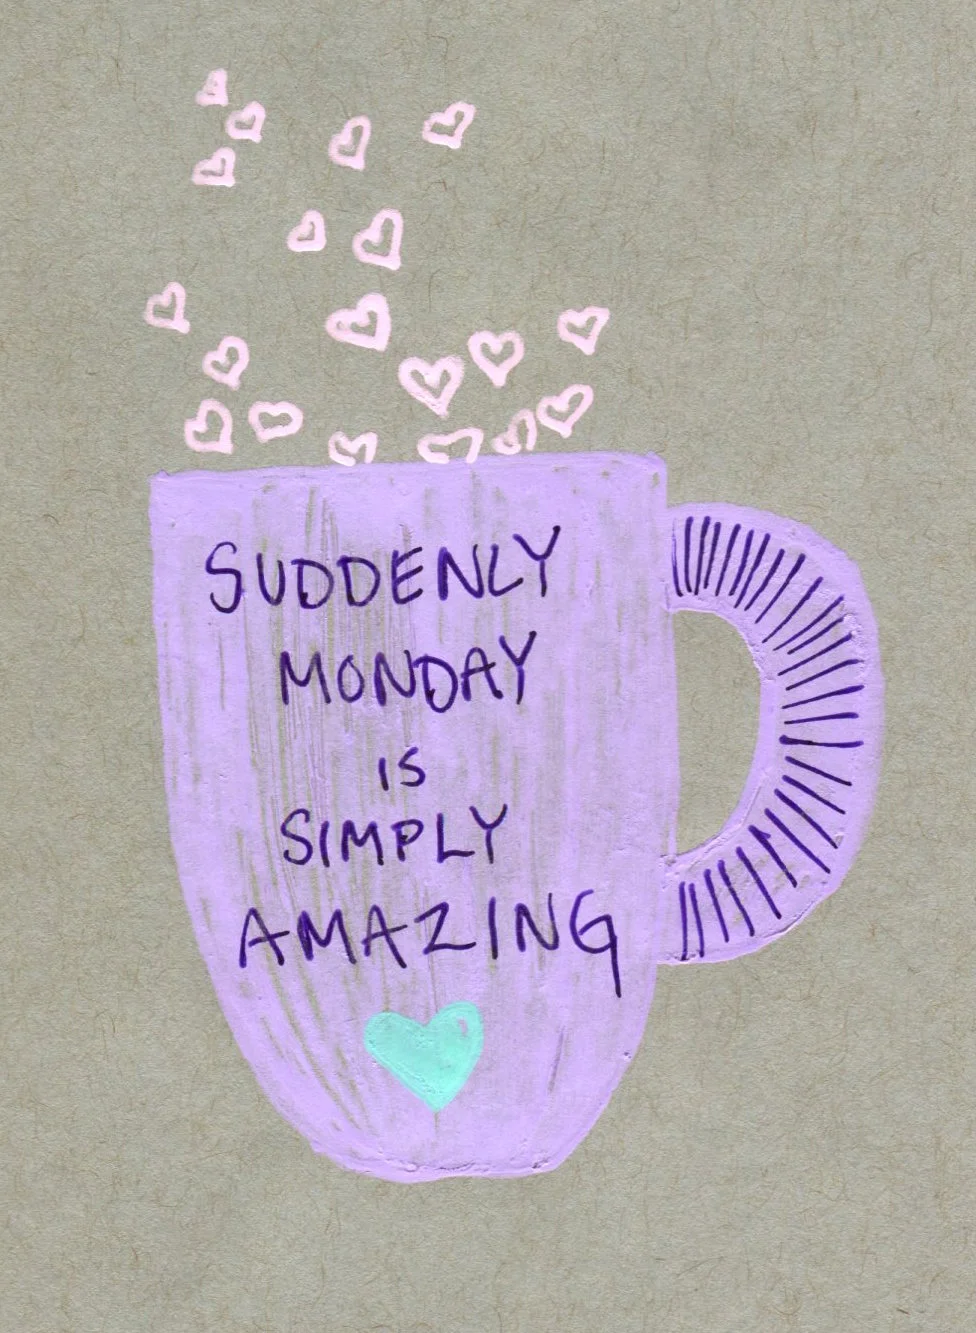 SUDDENLY
MONDAY
IS
SIMPLY
AMAZING